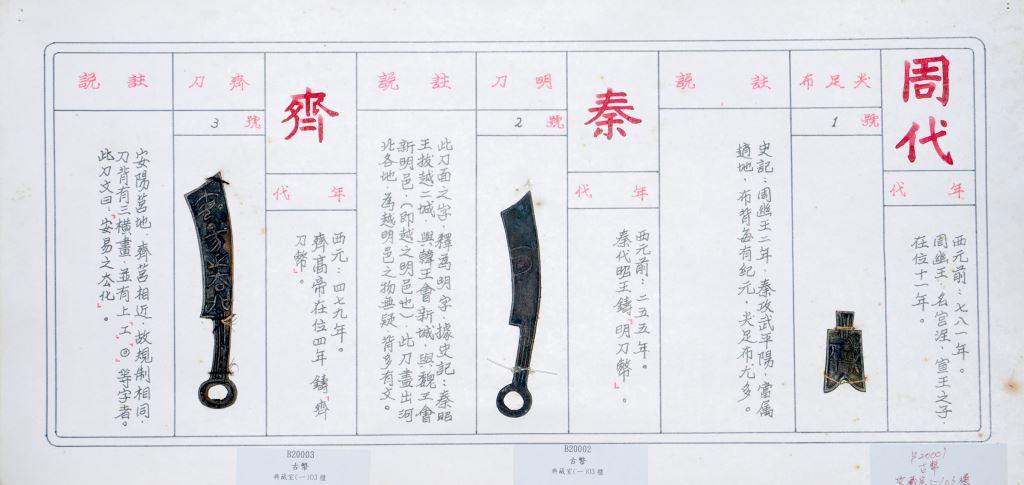 周代
年代
西元前：七八一年。
周幽王，名宮湦，宣王之子，
在位十一年。
尖足布
1號
註說
史記：周幽王二年，秦攻武平陽，當属
趙地，布背每有紀元，尖足布尤多。
秦
年代
西元前：二五五年。
秦代昭王鑄「明刀幣」。
明刀
2號
註說
此刀面之字，釋為明字，據史記：秦昭
王拔越二城，與韓王會新城，與魏王會
新明邑（即越之明邑也），此刀晝出河
北各地，為越明邑之物無疑，背多有文。
齊
年代
西元：四七九年。
齊高帝在位四年鑄「齊
刀幣」。
齊刀
3號
註說
安陽莒地，齊莒相近，故規制相同，
刀背有三橫畫，並有「上」「工」「⊙」等字者。
此刀文曰：「安昜之厺化」。
B20003
古幣
典藏室(一)03櫃
B20002
古幣
典藏室(一)03櫃
B20001
古幣
典藏室(一)03櫃